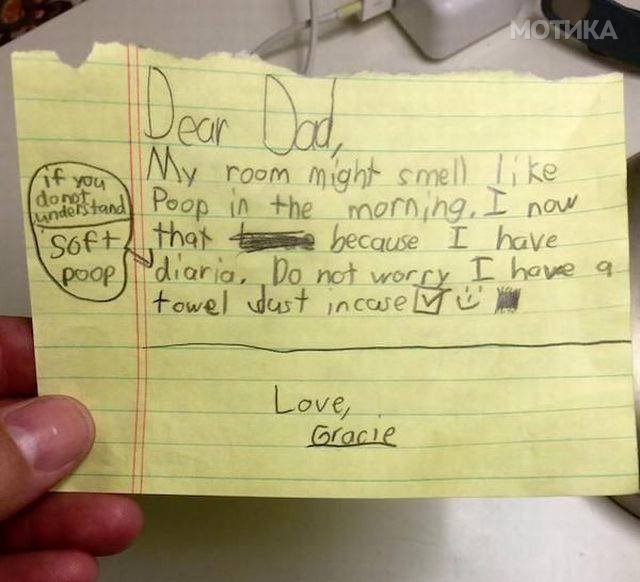 МОТИКА
Dear Dad,
My room might smell like
Poop in the morning. I now
that because I have
diaria. Do not worry I have a
towel Just incase ☑ ツ
if you
do not
understand
soft
poop
Love,
Gracie